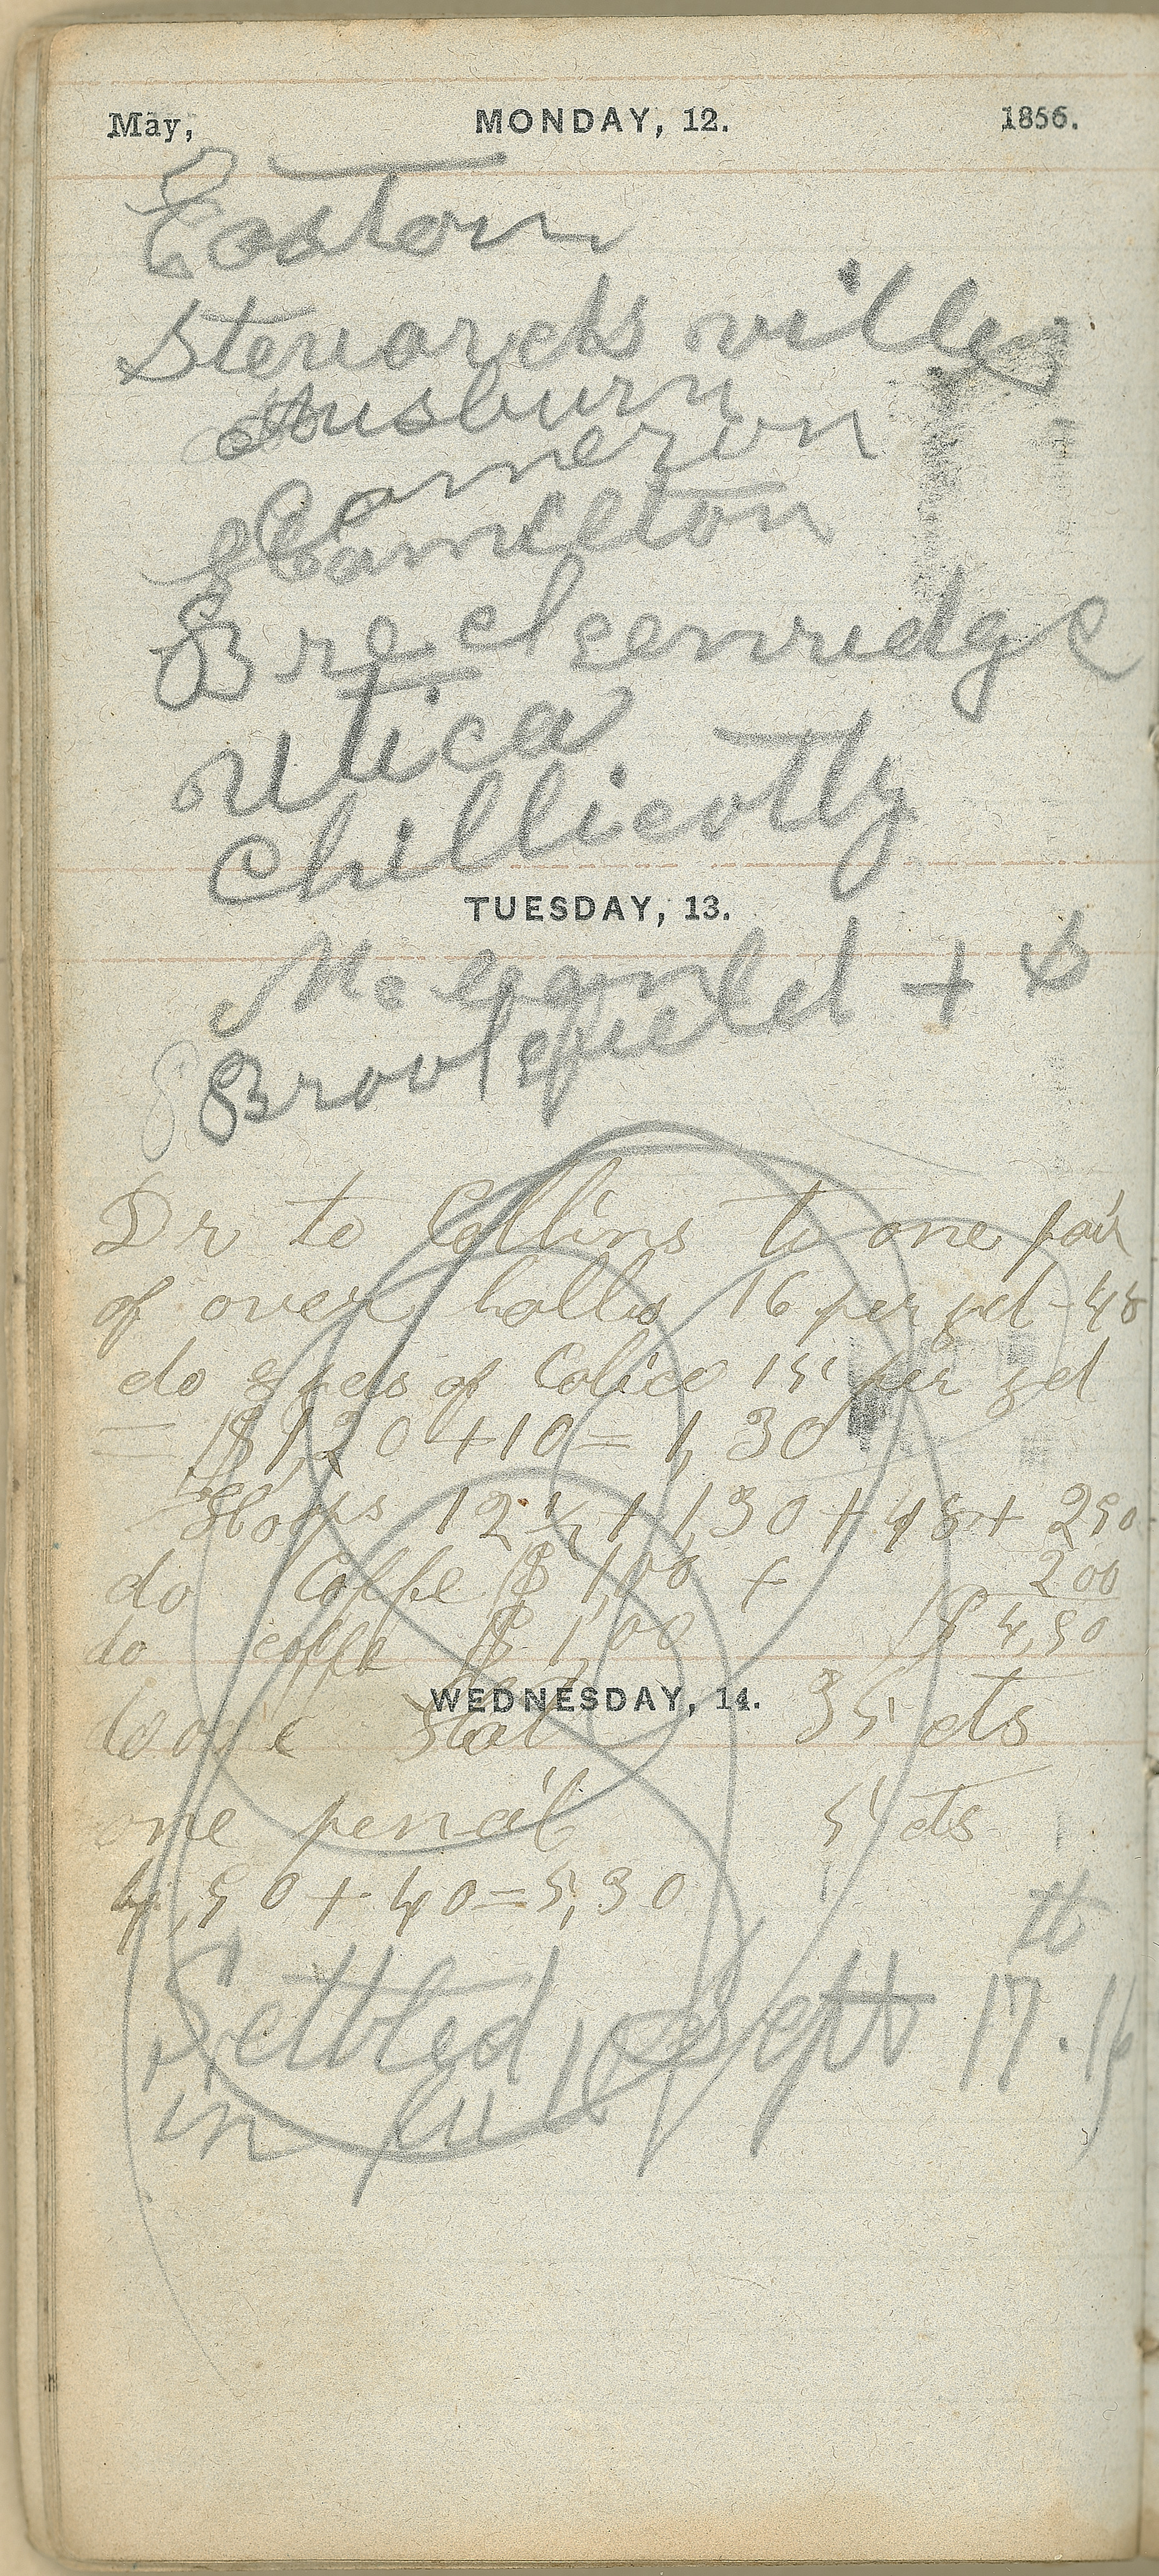 May, MONDAY, 12. 1856.
Easton
Stewardsville
Ausburn
Cameron
Hamilton
Breckenridge
utica
Chillicotty
TUESDAY, 13.
Brookfield + B
Dr to Collins to one pair
of over halls 16 per yd - 48
do 8 yds of Calico 15 per yd
= $1,20 + 10 = 1,30
12 1/2 + 1,30 + 48 + 2 50
do Coffe $1,00 + 2 00
do coffe $1,00 $4,50
WEDNESDAY, 14.
one Slat 35 cts
one pencil 5 cts
4,50 + 40 = 5,30
Settled Sept 17th
in full